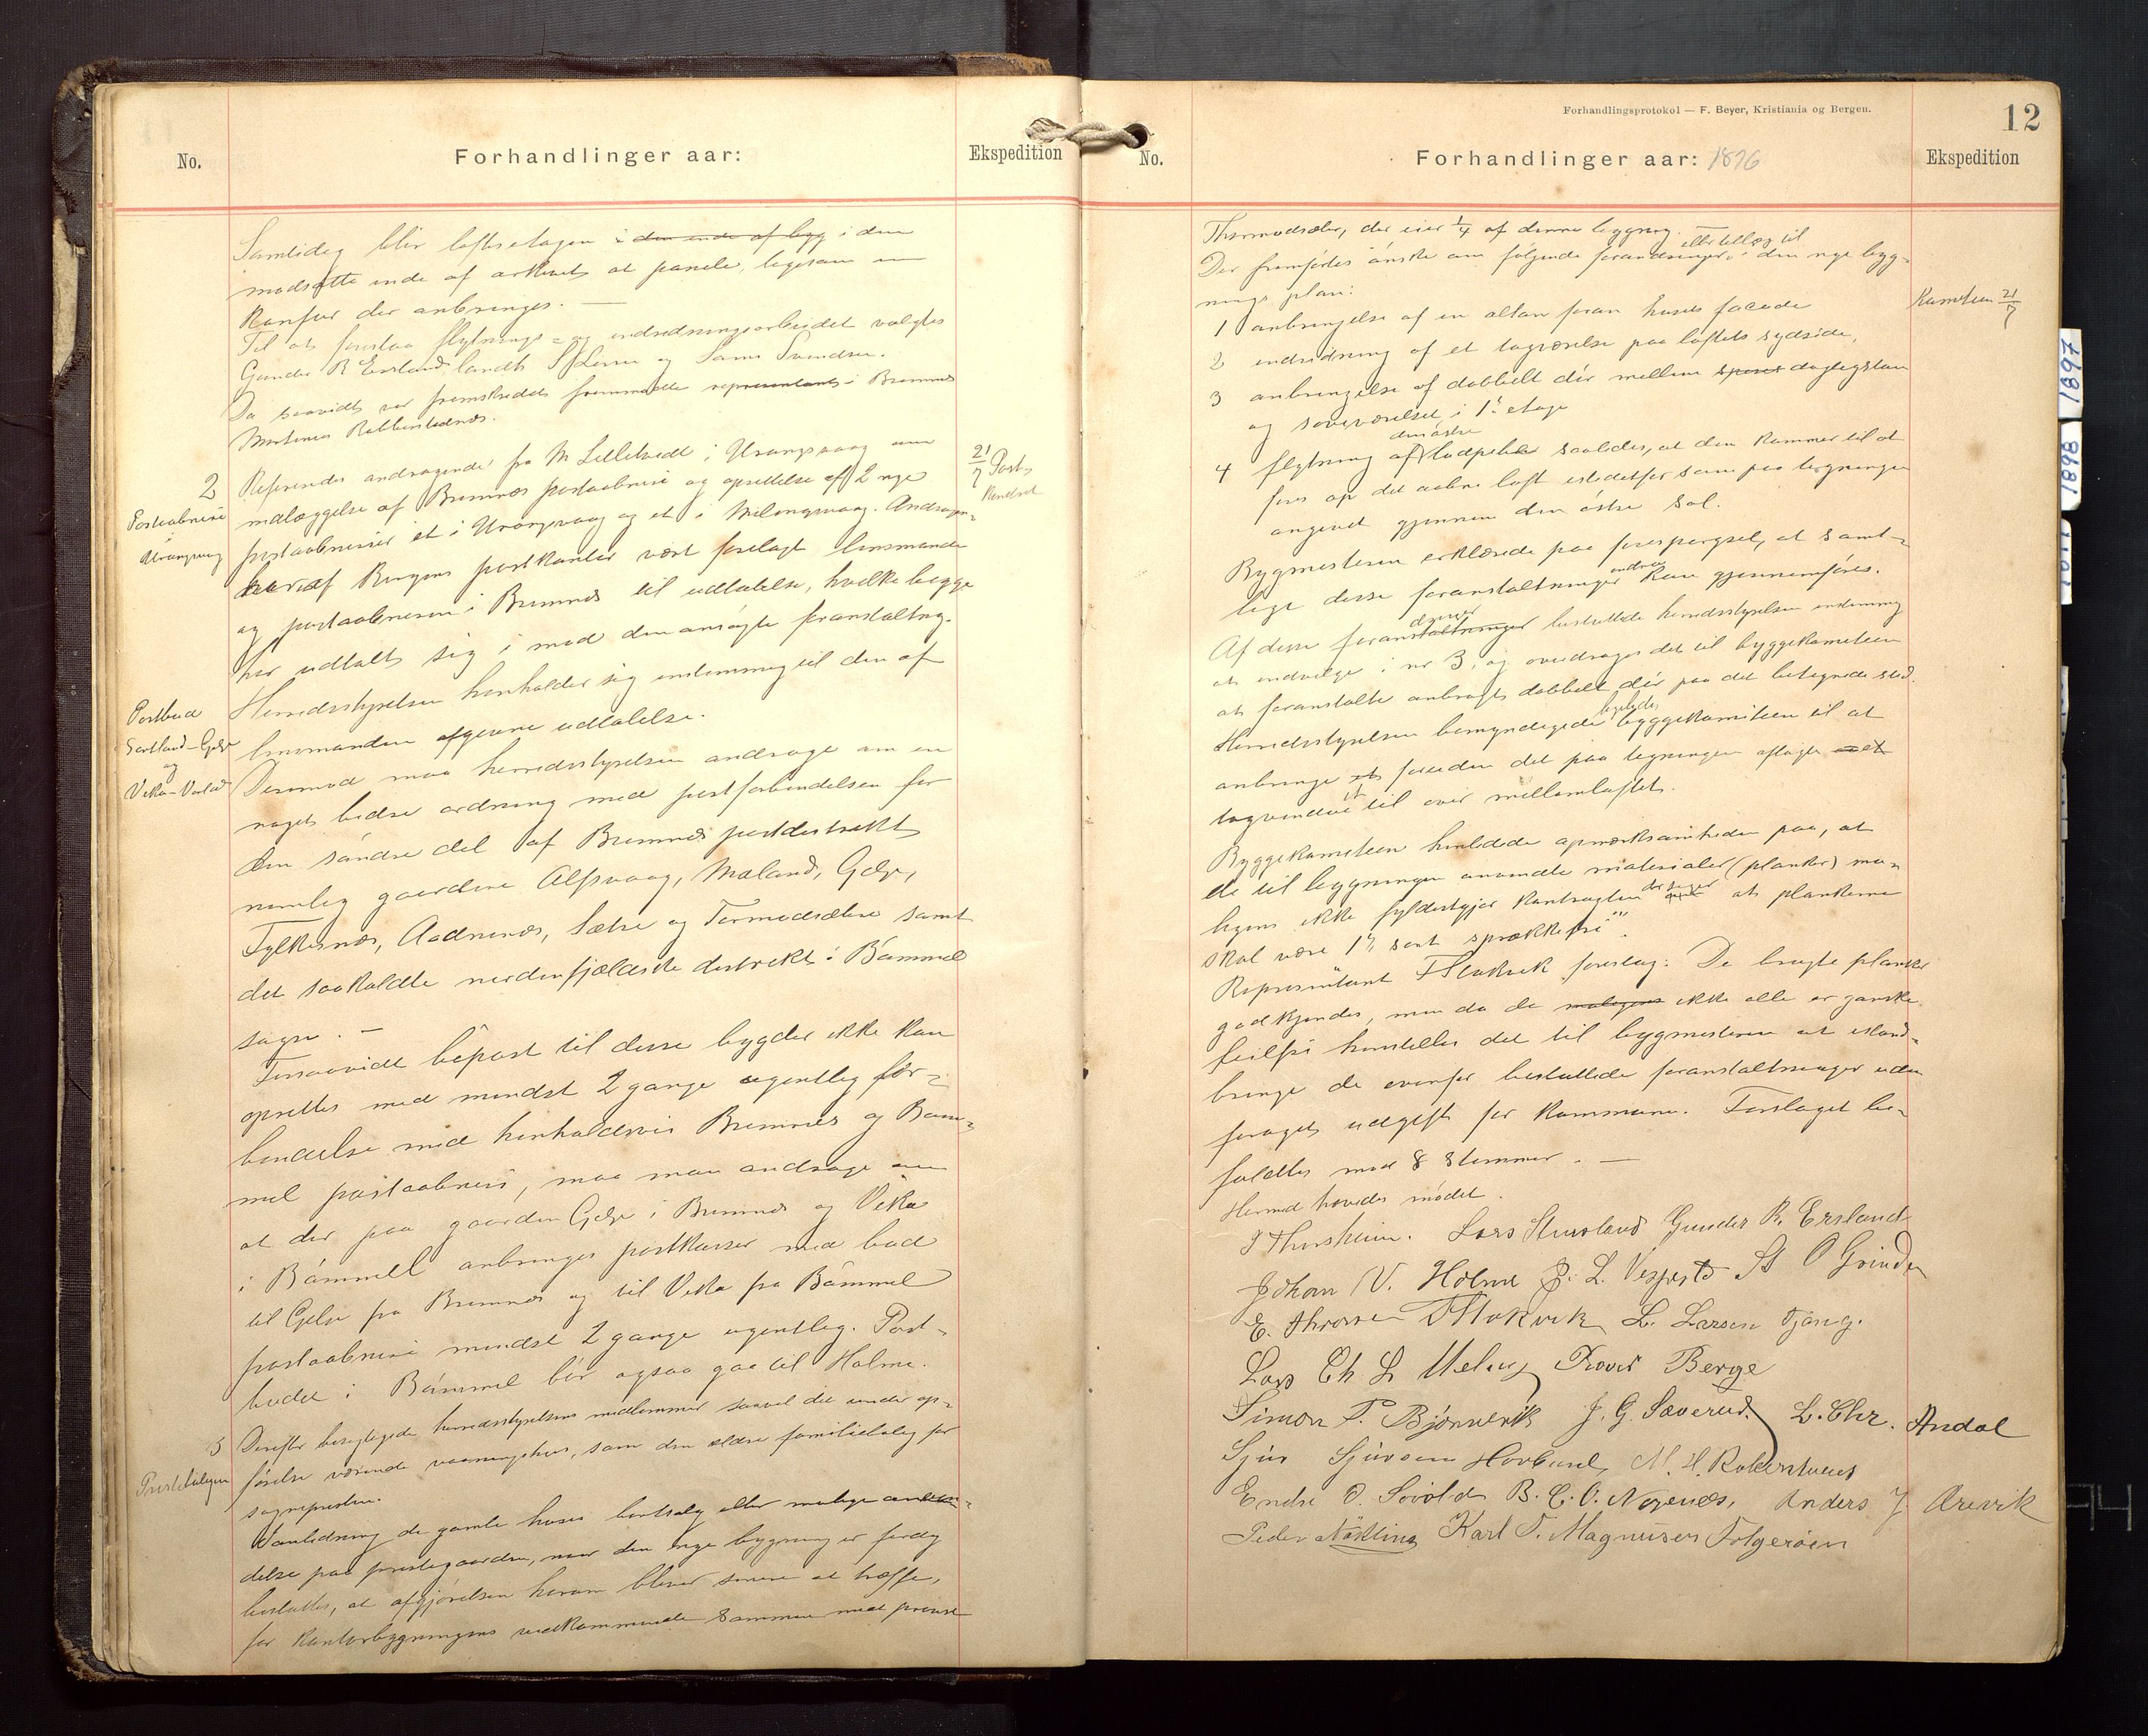 No.
Forhandlinger aar:
Ekspedition
Samtidig blir loftsetagen i den ende af bygg i den
modsatte ende af arkivet at panele, ligesom en
Kanfur der anbringes. —
Til at forestaa flytnings- og indredningsarbeidet valgtes
Gunder R Ersland, landh og Svendsen.
Da saavidt var fremskredet fremmødte representant i Bremnes
Mortinus
2
Postaabneri
i
Urangsvaag
Refereredes andragende fra M Lillletvedt i Urangsvaag om
21/7 Post-
Kontoret
indlæggelse af Bremnes postaabneri og oprettelse af 2 nye
postaabnerier et i Urangsvaag og et i Melingsvaag. Andragen-
har af Bergens postkontor vært forelagt lensmanden
og postaabneren i Bremnes til udtalelse, hvilke begge
har udtalt sig i mod den ansøgte foranstaltng.
Postbud
Sortland-Gelse
og
Vika-
Herredsstyrelsen henholder sig enstemmig til den af
lensmanden afgivne udtalelse.
Derimod maa herredsstyrelsen andrage om en
noget bedre ordning med postforbindelsen for
den søndre del af Bremnes postdistrikt
nemlig gaardene Alfsvaag, Mæland, Gelse,
Fylkesnes, Aadnenes, Sætre og Tormodsæter samt
det saakaldte nordenfjældske distrikt i Bømmel
sogn. —
Forsaavidt bipost til disse bygder ikke kan
oprettes med mindst 2 gange ugentlig for-
bindelse med henholdsvis Bremnes og Bøm-
mel postaabneri, maa man andrage om
at der paa gaarden Gelse i Bremnes og Vika
i Bømmel anbringes postkasser med bud
til Gelse fra Bremnes og til Vika fra Bømmel
postaabneri mindst 2 gange ugentlig. Post-
budet i Bømmel bør ogsaa gaa til Holme.
3
Prestebolgen
Derefter besigtigede herredsstyrelsens medlemmer saavel det under op-
førelse værende vaaningshus, som den ældre familiebolig for
sognepresten.
I anledning de gamle huses bortsalg eller mulige anven-
delse paa prestegaarden, naar den nye bygning er ferdig
besluttes, at afgjørelsen herom bliver senere at træffe,
for kontorbygningens vedkommende sammen med provst
Forhandlingsprotokol — F. Beyer, Kristiania og Bergen.
12
No.
Forhandlinger aar: 1896
Ekspedition
Thormodsæter, der eier 1/4 af denne bygning.
eller tillæg til
Der fremførtes ønske om følgende forandringer i den nye byg-
nings plan:
Komiteen 21/7
1 anbringelse af en altan foran husets facade
2 indredning af et tagværelse paa loftets sydside,
3 anbringelse af dobbelt dør mellem spises dagligstue
og soveværelset i 1ste etage
den østre
4 flytning af kladpebe saaledes, at den kommer til at
føres op det aabne loft istedetfor som paa tegningen
angivet gjennem den østre sal.
Bygmesteren erklærede paa forespørgsel, at samt-
lige disse foranstaltninger endnu kan gjennemføres.
dringer
Af disse foranstaltninger besluttede herredsstyrelsen enstemmig
at indvilge i nr 3, og overdrages det til byggekomiteen
at foranstalte anbragt dobbelt dør paa det betegnede sted.
ligeledes
Herredsstyrelsen bemyndigede byggekomiteen til at
anbringe et foruden det paa tegningen aflagte endnu
tagvindue til over mellemloftet.
Byggekomiteen henledede opmærksomheden paa, at
de til bygningen anvendte materialer (planker) mu-
ligens ikke fyldestgjør kontrakten der siger at plankerne
skal være 1ste sort sprækkefri".
Representant T Stokvik foreslog: De brugte planker
godkjendes, men da de muligens ikke alle er ganske
feilfri henstilles det til bygmesteren at istand-
bringe de ovenfor besluttede foranstaltninger uden
foraget udgift for kommunen. Forslaget be-
faldtes med 8 stemmer. —
Hermed hævedes mødet.
I Thorsheim. Lars Gunder R. Ersland
Johan N. Holme J. L. Vespestd O Grinde
E. T Stokvik L. Larsen Tjong.
Lars Ch L Meling Berge
Simon T. Bjørnevik J. G. Sæverud. L. Chr. Andal
Sjur Sjursen Hovland, N. H. Robberstvedt
Endre O. Sørvold B. C. O. Nøgenes, Anders J Ærevik
Peder Nøkling Karl T. Magnusen Folgerøen
1897
1898